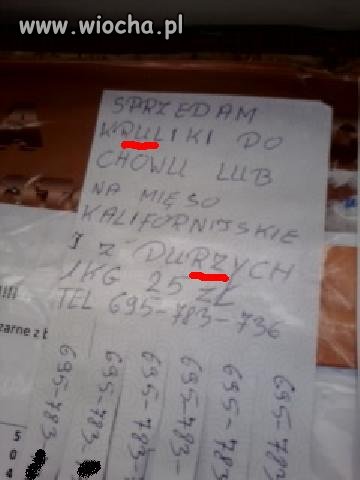 www.wiocha.pl
SPRZEDAM
KRULIKI DO
CHOWU LUB
NA MIĘSO
KALIFORNIJSKIE
I Z DURZYCH
1KG 25 ZŁ
TEL 695-783-736
zarne z b
5
0
4
695-783
695-783-
695-783-
695-783-
695-783-
695-783-